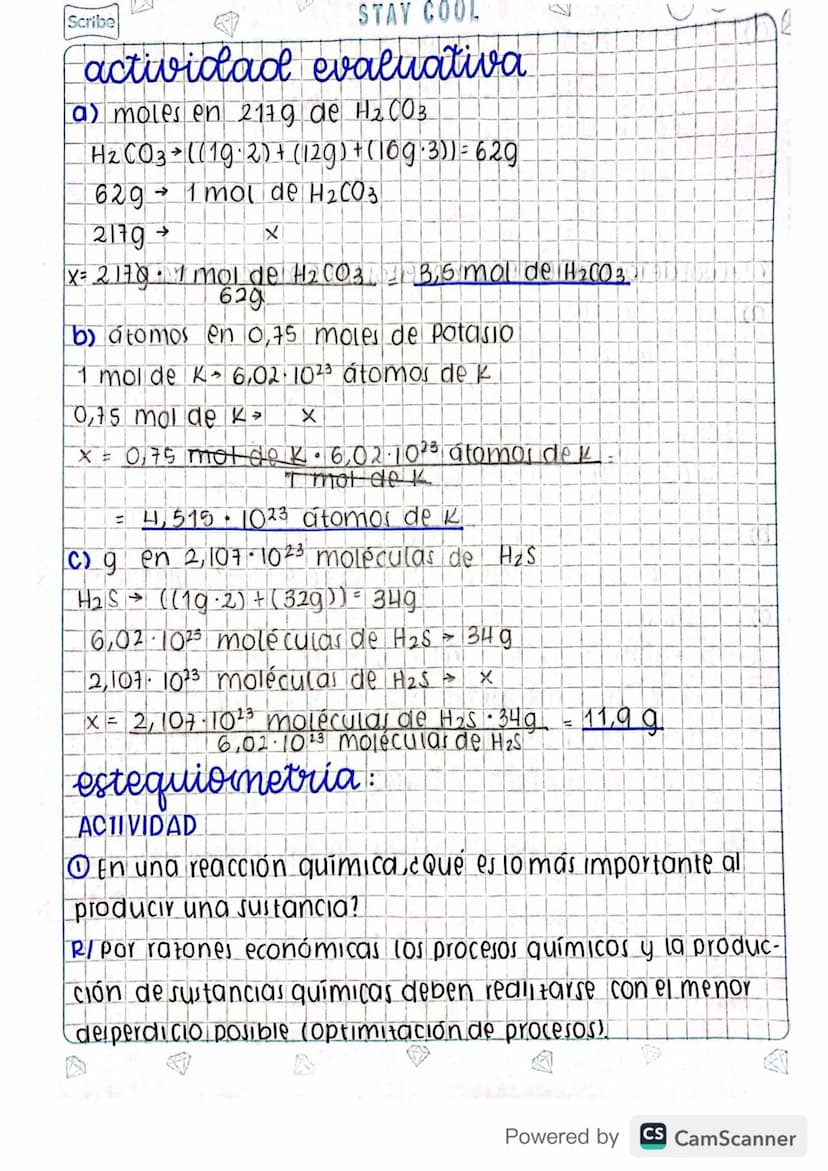 Scribe
STAY COOL
actividad evaluativa
a) moles en 217g de H₂CO₃
H₂CO₃→((1g·2)+(12g)+(16g·3))=62g
62g → 1 mol de H₂CO₃
217g → x
x= 217g · 1 mol de H₂CO₃ = 3,5 mol de H₂CO₃
62g
b) átomos en 0,75 moles de Potasio
1 mol de K→ 6,02·10²³ átomos de K
0,75 mol de K→ x
x = 0,75 mol de K · 6,02·10²³ átomos de K =
1 mol de K
= 4,515 · 10²³ átomos de K
c) g en 2,107·10²³ moléculas de H₂S
H₂S → ((1g·2)+(32g))= 34g
6,02·10²³ moléculas de H₂S → 34g
2,107·10²³ moléculas de H₂S → x
x = 2,107·10²³ moléculas de H₂S · 34g = 11,9 g
6,02·10²³ moléculas de H₂S
estequiometría:
ACTIVIDAD
① En una reacción química,¿Qué es lo más importante al
producir una sustancia?
R/ Por razones económicas los procesos químicos y la produc-
ción de sustancias químicas deben realizarse con el menor
desperdicio posible (optimización de procesos).
Powered by CS CamScanner